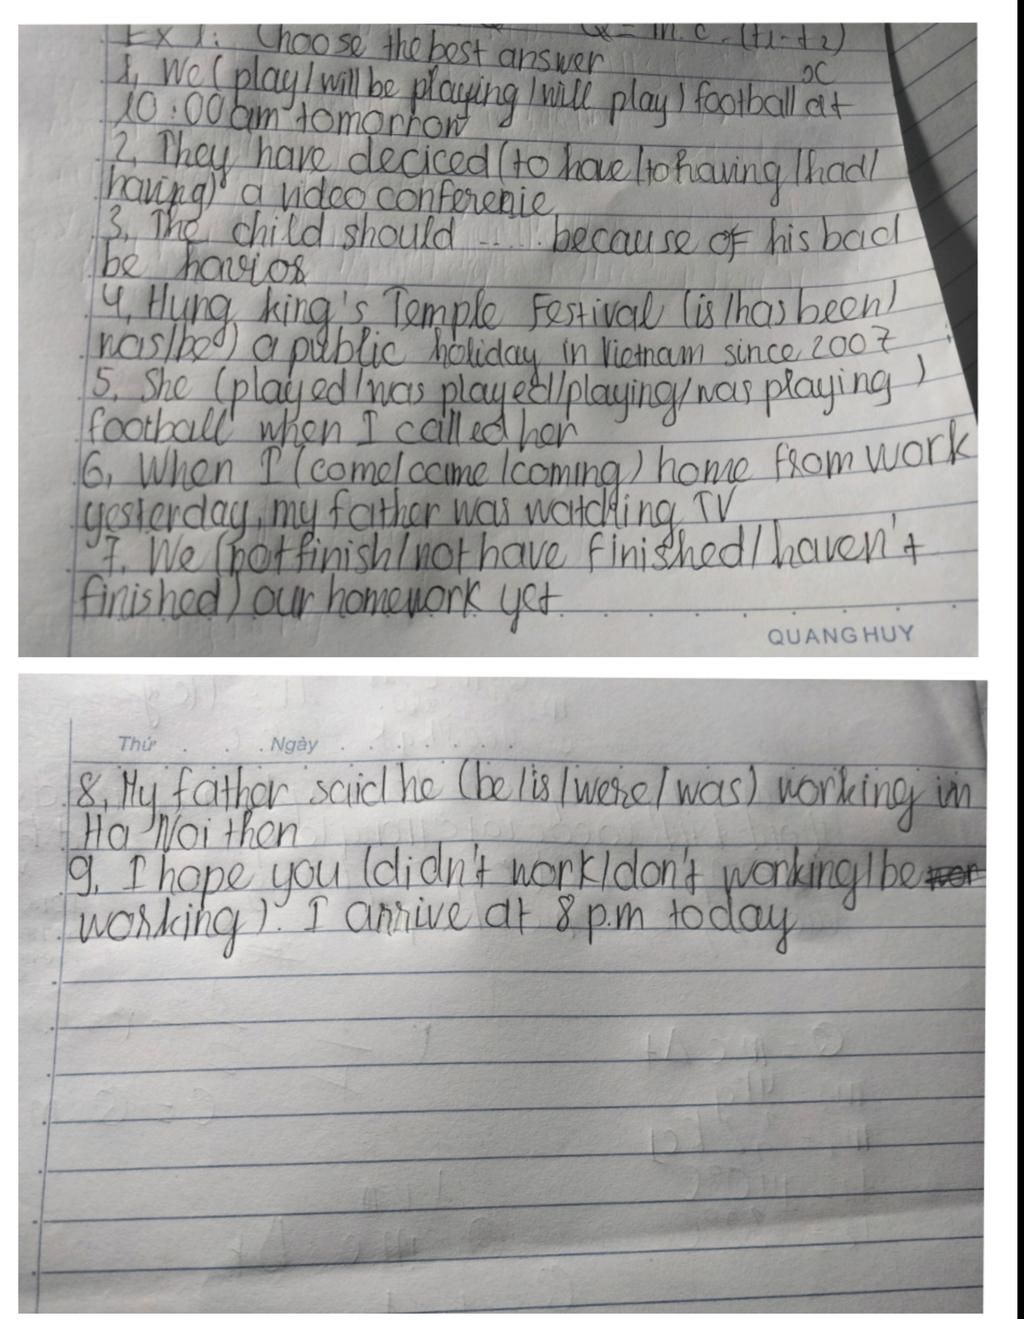 Q = m.c.(t1-t2)
Ex 1: Choose the best answer
x
1, We (play/will be playing/will play) football at
10:00am tomorrow
2, They have deciced (to have/to having/had/
having) a video conferenie
3, The child should ..... because of his bad
be haviors
4, Hung king's Temple Festival (is/has been/
was/bed) a public holiday in Vietnam since 2007
5. She (played/was played/playing/was playing)
football when I called her
6, When I (come/came/coming) home from work
yesterday, my father was watching TV
7. We (not finish/not have finished/haven't
finished) our homework yet
QUANG HUY
Thứ . . . Ngày . . . . . . .
8, My father said he (be/is/were/was) working in
Ha Noi then
9, I hope you (didn't work/don't working/be
working). I arrive at 8 p.m today